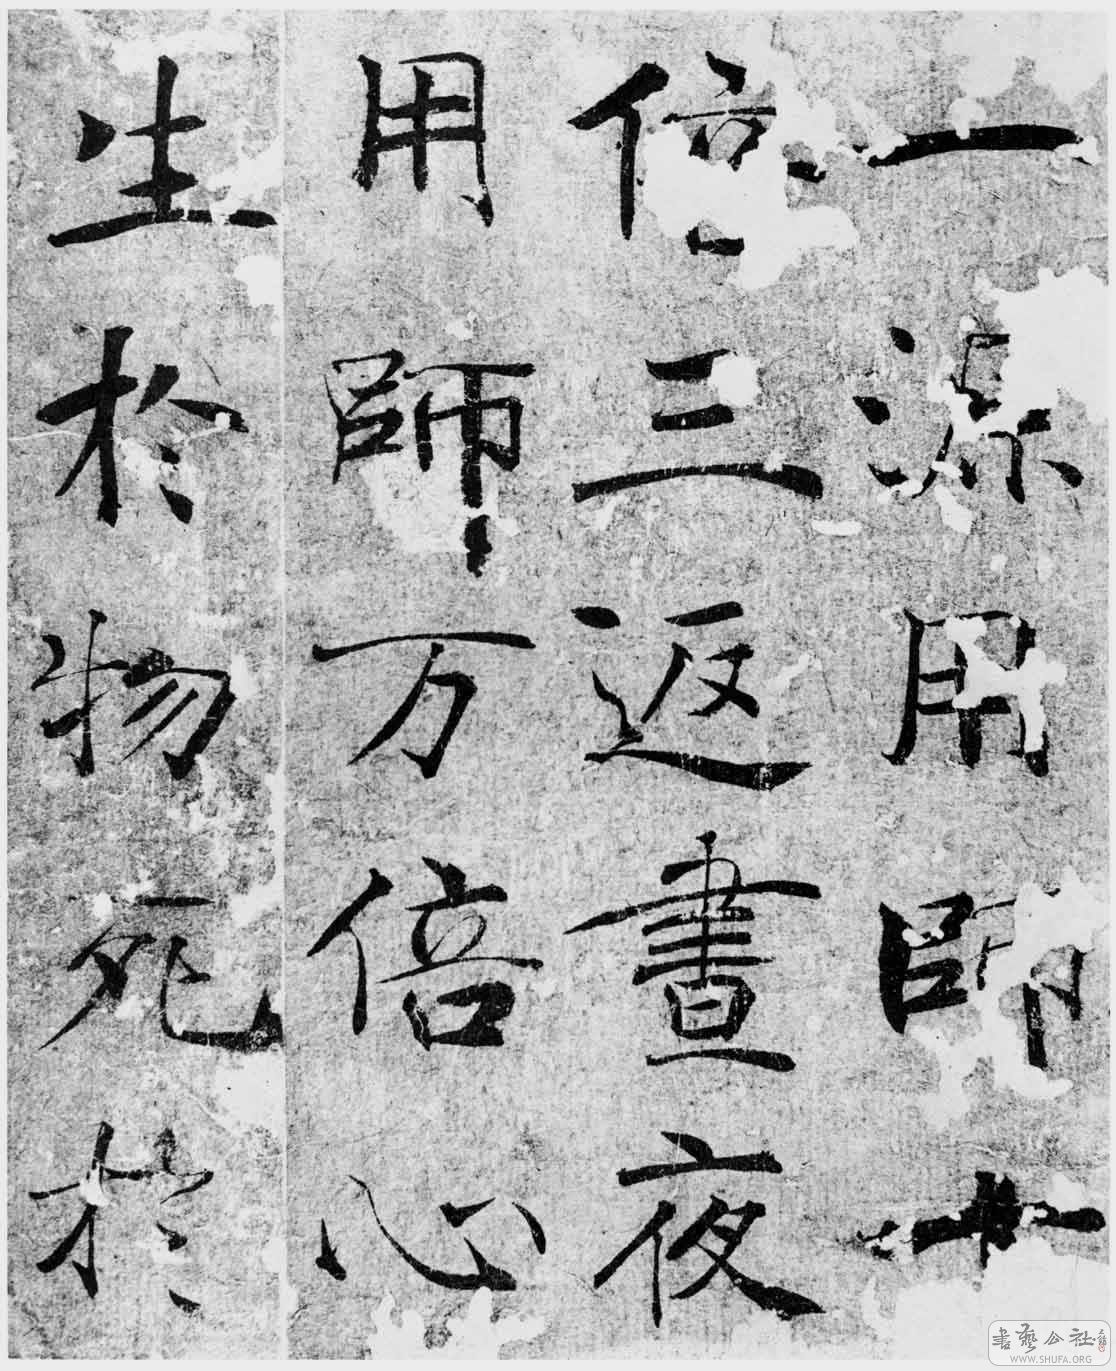 一源用師十
倍三返晝夜
用師万倍心
生於物死於
書藝公社
WWW.SHUFA.ORG